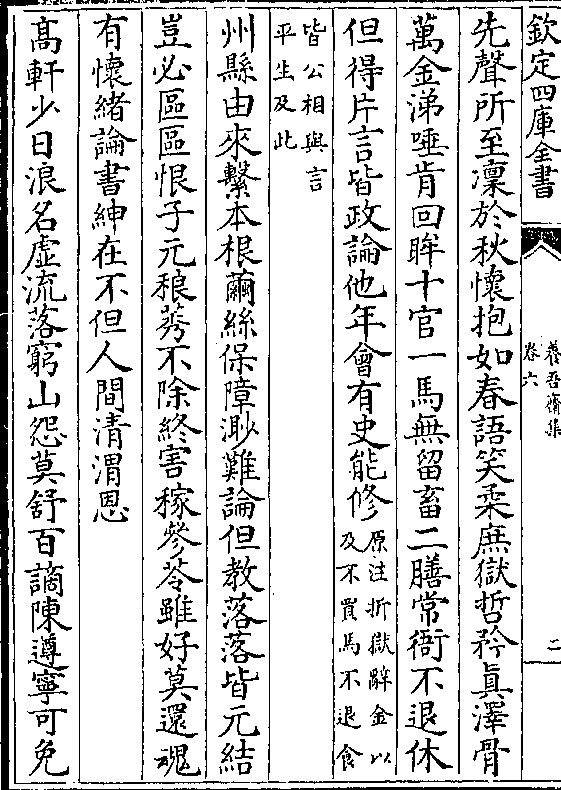 欽定四庫全書
養吾齋集
卷六
二
先聲所至凜於秋懷抱如春語笑柔庶獄哲矜真澤骨
萬金涕唾肯回眸十官一馬無留畜二膳常衙不退休
但得片言皆政論他年會有史能修原注折獄辭金以
及不買馬不退食
皆公相與言
平生及此
州縣由來繫本根繭絲保障渺難論但教落落皆元結
豈必區區恨子元稂莠不除終害稼參苓雖好莫還魂
有懷緒論書紳在不但人間清渭恩
髙軒少日浪名虛流落窮山怨莫舒百謫陳遵寧可免